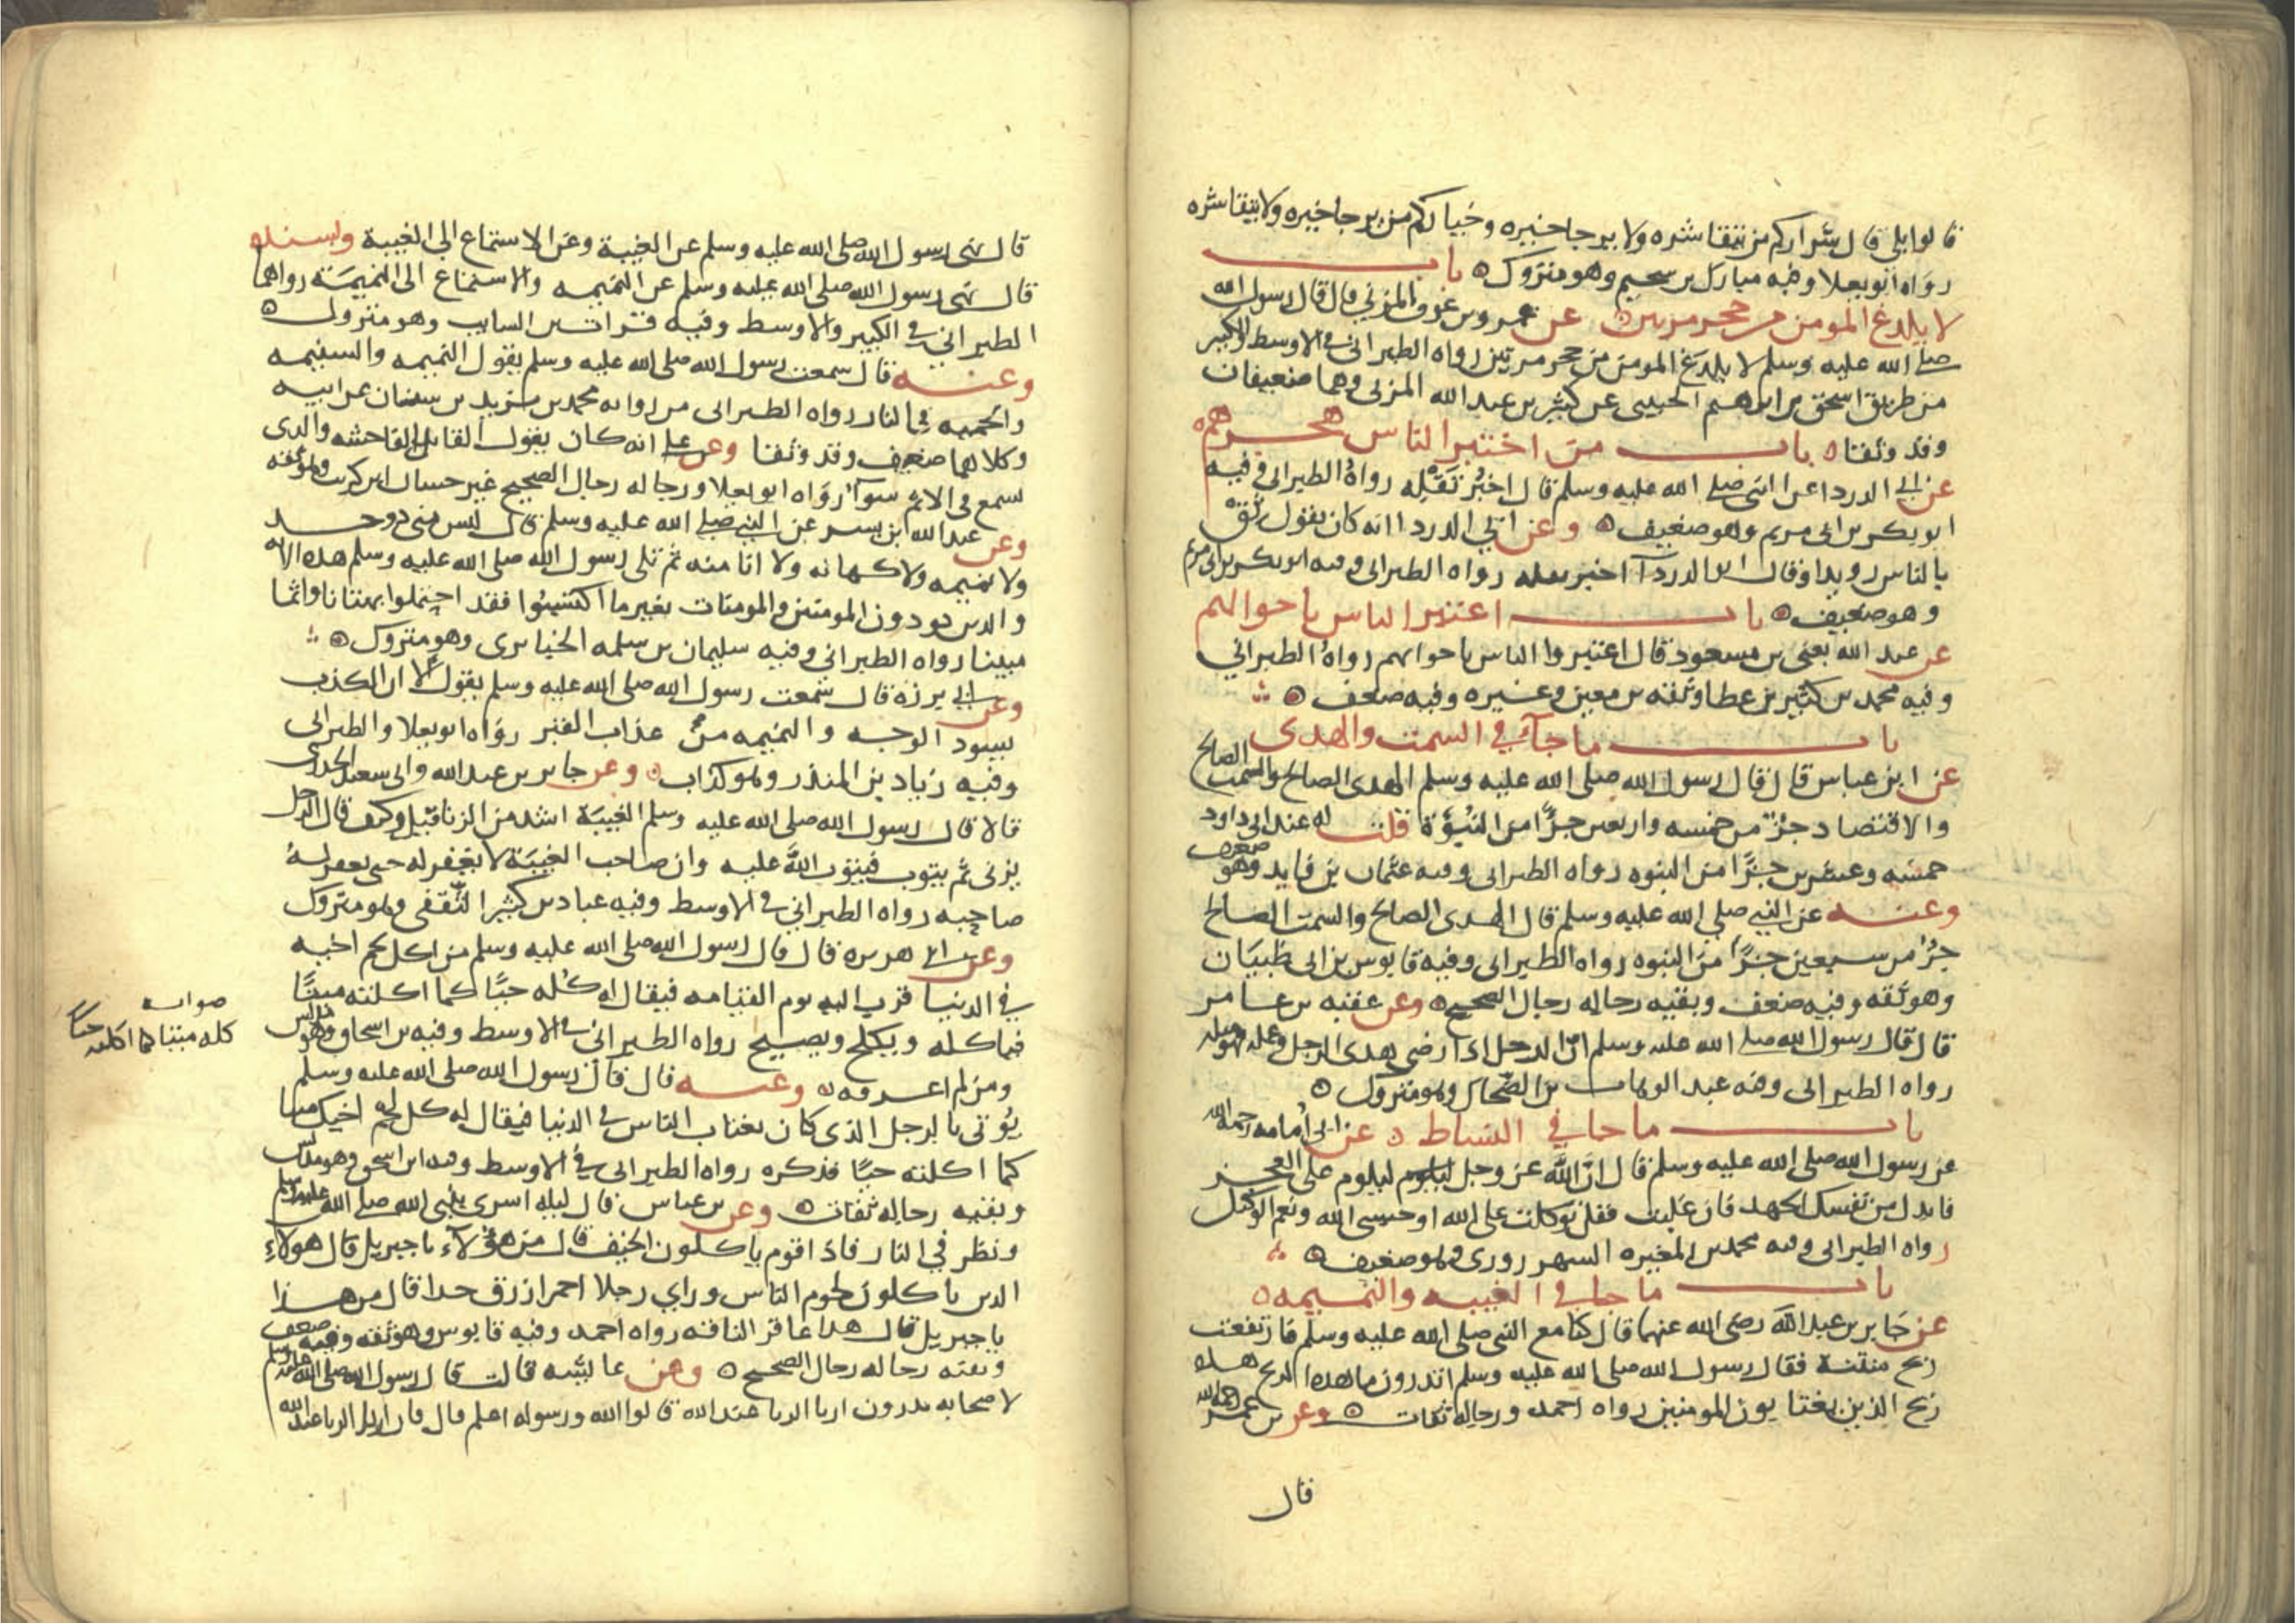 قالوا بلى قال شراركم من يتقا شره ولا يرجا خيره وخياركم من يرجا خيره ولا يتقا شره
رواه ابو يعلا وفيه مبارك بن سحيم وهو متروك ه باب
لا يلدغ المومن من جحر مرتين ه عن عمرو بن عوف المزني قال قال رسول الله
صلى الله عليه وسلم لا يلدغ المومن من جحر مرتين رواه الطبراني في الاوسط والكبير
من طريق اسحق بن ابرهيم الحنيني عن كثير بن عبد الله المزني وهما ضعيفان
وقد وثقا ه باب من اختبر الناس هجرهم
عن ابي الدردا عن النبي صلى الله عليه وسلم قال اخبر تقله رواه الطبراني وفيه
ابو بكر بن ابي مريم وهو ضعيف ه وعن ابي الدردا انه كان يقول ثق
بالناس رويدا وقال ابو الدردآ اخبر تقله رواه الطبراني وفيه ابو بكر بن ابي مريم
وهو ضعيف ه باب اعتبر الناس باحوالهم
عن عبد الله يعني بن مسعود قال اعتبروا الناس باحوالهم رواه الطبراني
وفيه محمد بن كثير بن عطا وثقه بن معين وغيره وفيه ضعف ه
باب ما جآ في السمت والهدى
عن ابن عباس قال قال رسول الله صلى الله عليه وسلم الهدى الصالح والسمت الصالح
والاقتصاد جزؤ من خمسه واربعين جزًا من النبوة قلت له عند ابي داود
خمسه وعشرين جزًا من النبوه رواه الطبراني وفيه عثمان بن فايد وهو ضعيف
وعنه عن النبي صلى الله عليه وسلم قال الهدى الصالح والسمت الصالح
جزؤ من سبعين جزًا من النبوه رواه الطبراني وفيه قابوس بن ابي ظبيان
وهو ثقه وفيه ضعف وبقيه رجاله رجال الصحيح ه وعن عقبه بن عامر
قال قال رسول الله صلى الله عليه وسلم ان الرجل اذا رضى هدى الرجل وعمله فهو مثله
رواه الطبراني وفيه عبد الوهاب بن الضحاك وهو متروك ه
باب ما جا في النشاط ه عن ابي امامه رحمه الله
عن رسول الله صلى الله عليه وسلم قال ان الله عز وجل ليلوم على العجز
فابدل من نفسك الجهد فان غلبت فقل توكلت على الله او حسبي الله ونعم الوكيل
رواه الطبراني وفيه محمد بن المغيره السهروردي وهو ضعيف ه
باب ما جا في الغيبه والنميمه ه
عن جابر بن عبد الله رضى الله عنهما قال كنا مع النبي صلى الله عليه وسلم فارتفعت
ريح منتنة فقال رسول الله صلى الله عليه وسلم اتدرون ما هذه الريح هذه
ريح الذين يغتابون المومنين رواه احمد ورجاله ثقات ه وعن بن عمر
قال
قال نهى رسول الله صلى الله عليه وسلم عن الغيبة وعن الاستماع الى الغيبة وبسنده
قال نهى رسول الله صلى الله عليه وسلم عن النميمه والاستماع الى النميمة رواهما
الطبراني في الكبير والاوسط وفيه فرات بن السايب وهو متروك ه
وعنه قال سمعت رسول الله صلى الله عليه وسلم يقول النميمه والشتيمه
والحميه في النار رواه الطبراني من روايه محمد بن يزيد بن سنان عن ابيه
وكلاهما ضعيف وقد وثقا وعن علي انه كان يقول القايل الفاحشه والذى
يسمع في الاثم سوآ رواه ابو يعلا ورجاله رجال الصحيح غير حسان بن كريب وهو ثقه
وعن عبد الله ابن بسر عن النبي صلى الله عليه وسلم قال ليس مني ذو حسد
ولا نميمه ولا كهانه ولا انا منه ثم تلى رسول الله صلى الله عليه وسلم هذه الايه
والذين يوذون المومنين والمومنات بغير ما اكتسبوا فقد احتملوا بهتانا واثما
مبينا رواه الطبراني وفيه سليمان بن سلمه الخبايرى وهو متروك ه
وعن ابي برزه قال سمعت رسول الله صلى الله عليه وسلم يقول الا ان الكذب
يسود الوجه والنميمه من عذاب القبر رواه ابو يعلا والطبراني
وفيه زياد بن المنذر وهو كذاب ه وعن جابر بن عبد الله وابي سعيد الخدرى
قالا قال رسول الله صلى الله عليه وسلم الغيبة اشد من الزنا قيل وكيف قال الرجل
يزني ثم يتوب فيتوب الله عليه وان صاحب الغيبة لا يغفر له حتى يغفر له
صاحبه رواه الطبراني في الاوسط وفيه عباد بن كثير الثقفي وهو متروك
وعن ابي هريره قال قال رسول الله صلى الله عليه وسلم من اكل لحم اخيه
في الدنيا قرب اليه يوم القيامه فيقال له كله حيًا كما اكلته ميتًا
فياكله ويكلح ويصيح رواه الطبراني في الاوسط وفيه بن اسحاق وهو مدلس
ومن لم اعرفه ه وعنه قال قال رسول الله صلى الله عليه وسلم
يؤتى بالرجل الذى كان يغتاب الناس في الدنيا فيقال له كل لحم اخيك ميتا
كما اكلته حيًا فذكره رواه الطبراني في الاوسط وفيه ابن اسحق وهو مدلس
وبقيه رجاله ثقات ه وعن بن عباس قال ليله اسرى بنبي الله صلى الله عليه وسلم
ونظر في النار فاذا قوم ياكلون الجيف قال من هؤلآء يا جبريل قال هولاء
الذين ياكلون لحوم الناس وراي رجلا احمر ازرق جدا قال من هذا
يا جبريل قال هذا عاقر الناقه رواه احمد وفيه قابوس وهو ثقه وفيه ضعف
وبقيه رجاله رجال الصحيح ه وعن عايشه قالت قال رسول الله صلى الله عليه وسلم
لاصحابه تدرون اربا الربا عند الله قالوا الله ورسوله اعلم قال فان اربا الربا عند الله
صوابه
كله ميتا كما اكلته حيًا